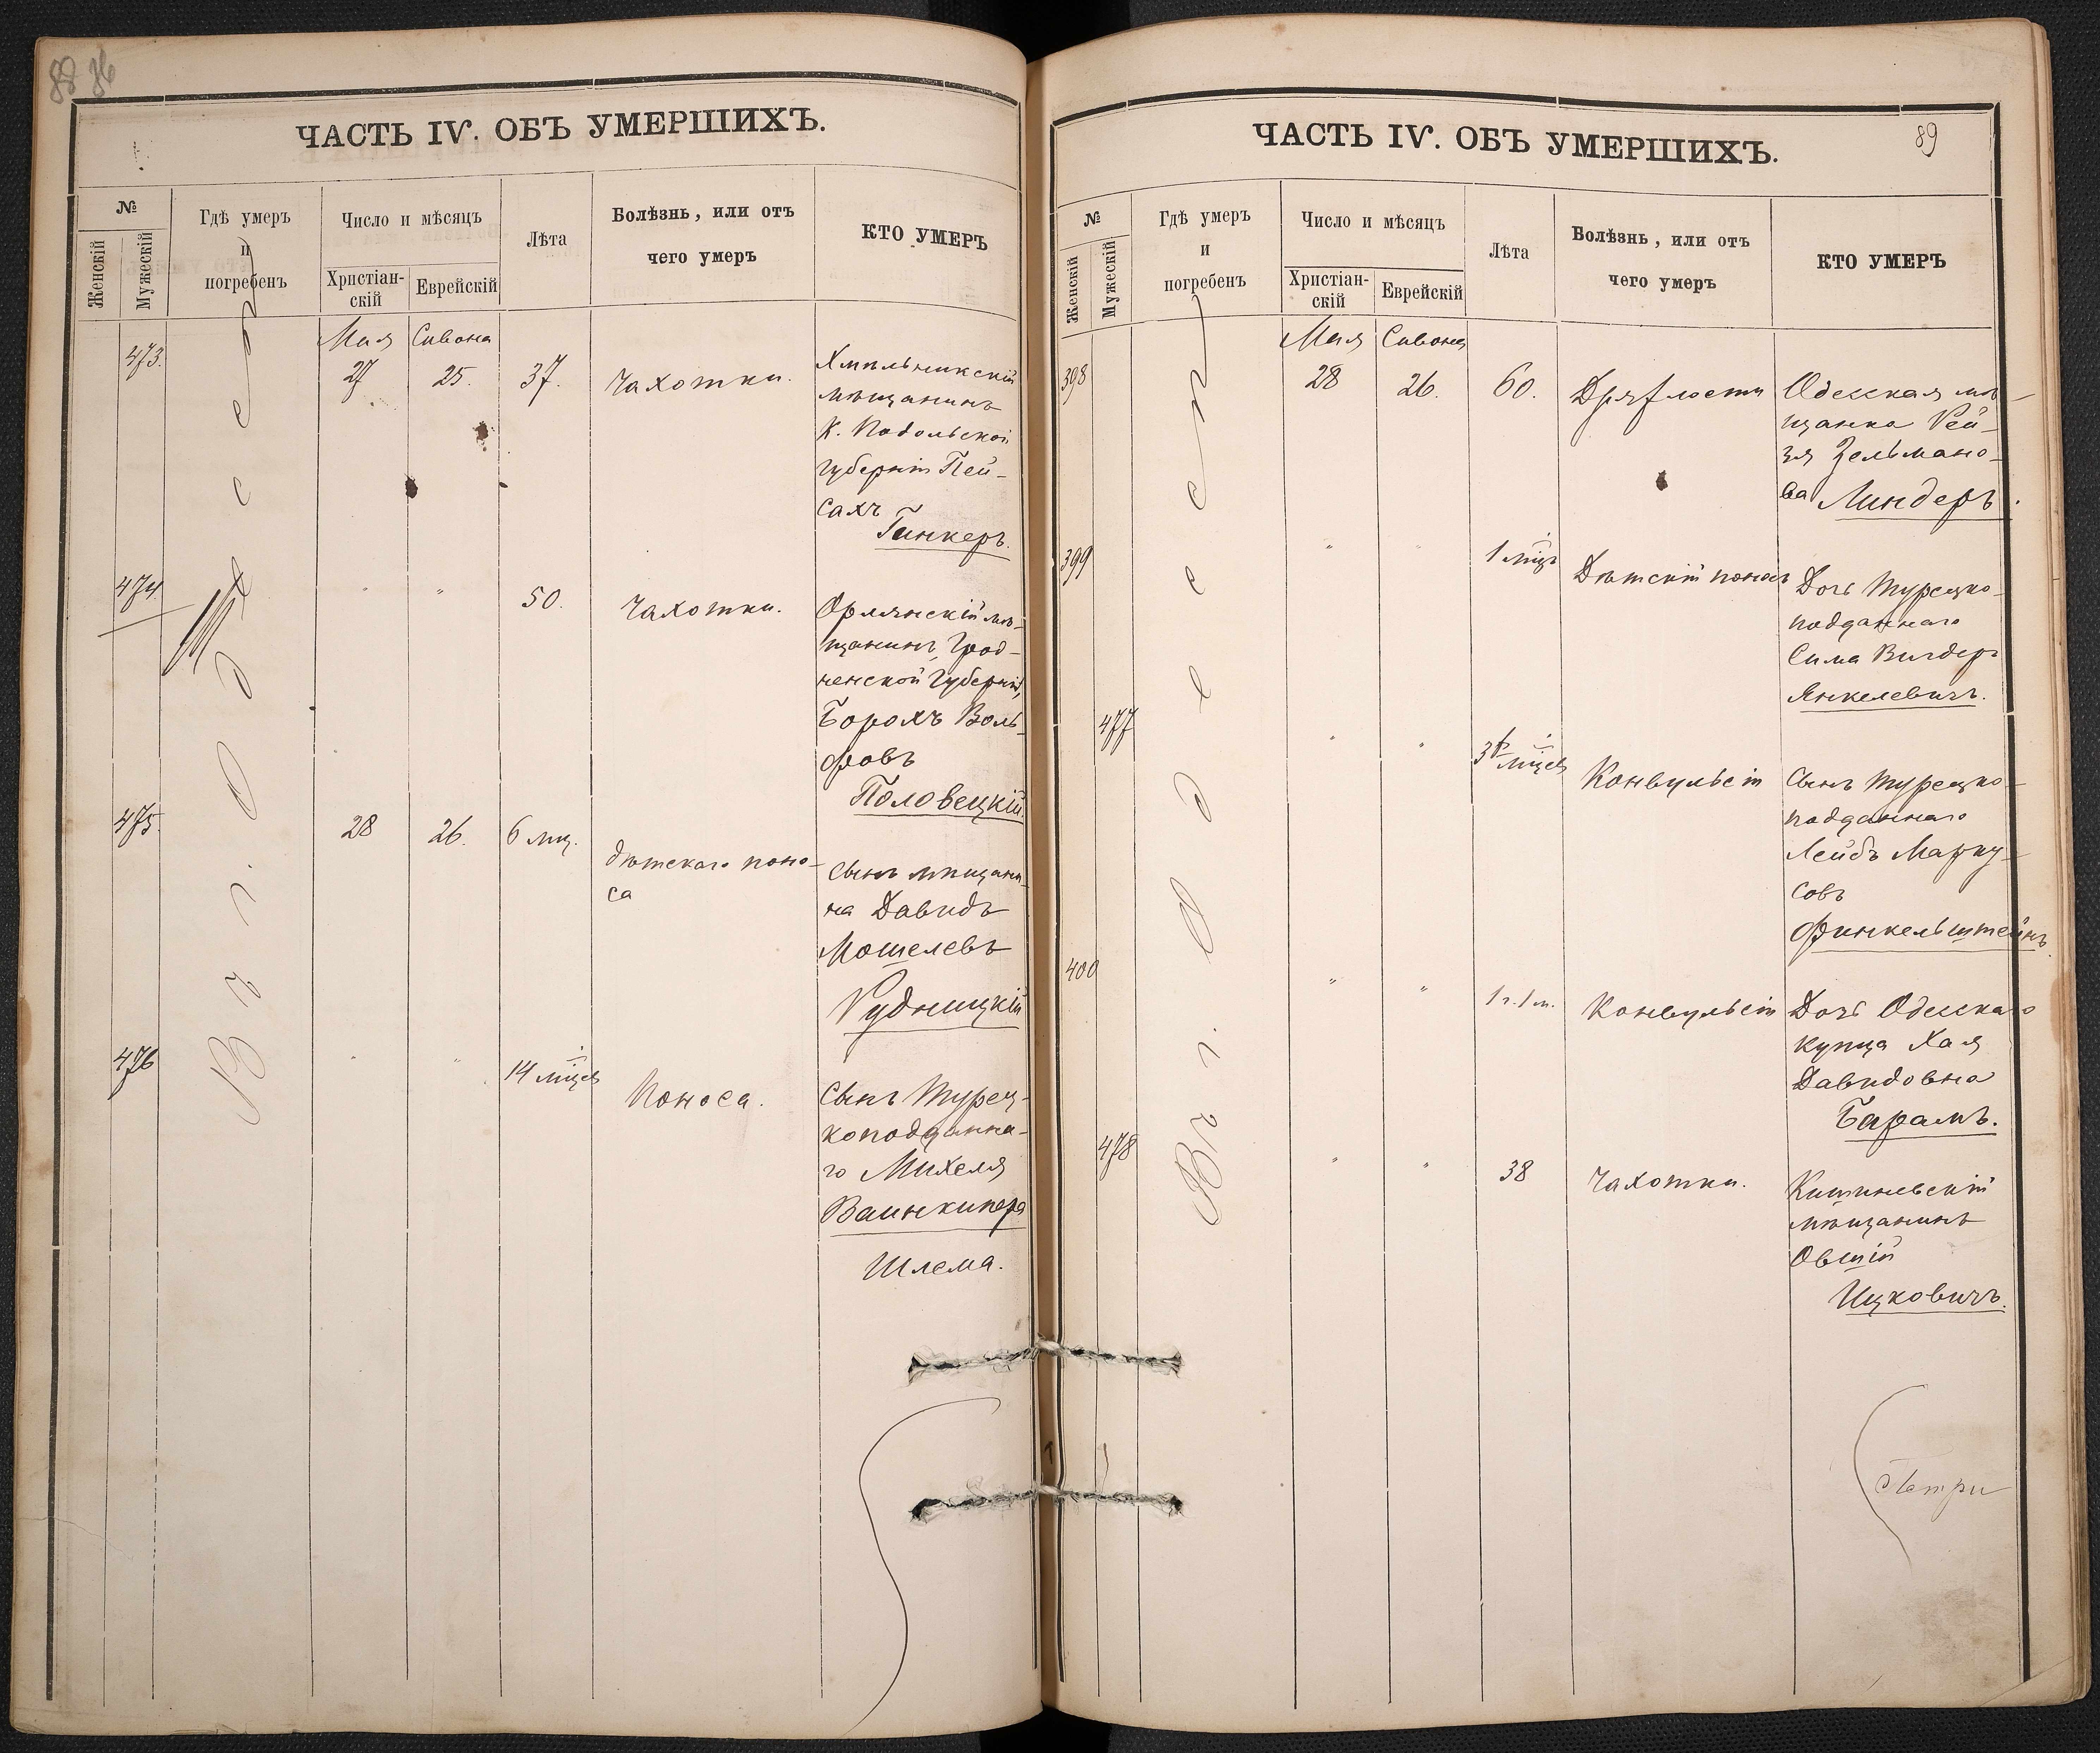 88 36
ЧАСТЬ IV. ОБЪ УМЕРШИХЪ.
№
Женскій
Мужескій
Гдѣ умеръ
и
погребенъ
Число и мѣсяцъ
Христіан-
скій
Еврейскій
Лѣта
Болѣзнь, или отъ
чего умеръ
КТО УМЕРЪ
Въ г. Одессѣ
Мая Сивона
473. 27 25. 37. Чахотки.
Хмѣльникскій
мѣщанинъ
К. Подольской
губерніи Пей-
сахъ
Гинкеръ.
474 " " 50. Чахотки.
Орлянскій мѣ-
щанинъ, Грод-
ненской Губерніи,
Борохъ Воль-
фовъ
Половецкій.
475. 28 26. 6 мц.
дѣтскаго поно-
са
Сынъ мѣщани-
на Давидъ
Мошелевъ
Рудницкій
476 " " 14 мцев
Поноса.
Сынъ Турец-
коподданна-
го Михеля
Ваинкипера
Шлема.
89
ЧАСТЬ IV. ОБЪ УМЕРШИХЪ.
№
Женскій
Мужескій
Гдѣ умеръ
и
погребенъ
Число и мѣсяцъ
Христіан-
скій
Еврейскій
Лѣта
Болѣзнь, или отъ
чего умеръ
КТО УМЕРЪ
Въ г. Одессѣ
Мая Сивона
398 28 26. 60. Дряхлости
Одесская мѣ-
щанка Рей-
зя Зельмано-
ва Линдеръ.
399 " " 1 мцъ
Дѣтскій поносъ
Дочь Турецко-
подданнаго
Сима Вигдеръ
Янкелевичъ.
477 " " 3 мцев
Конвульсіи
Сынъ Турецко-
подданнаго
Лейбъ Марку-
совъ
Финкельштейнъ.
400 " " 1 г. 1 м.
Конвульсіи
Дочь Одесскаго
купца Хая
Давидовна
Барамъ.
478 " " 38 Чахотки.
Кишиневскій
мѣщанинъ
Овшій
Ицковичъ.